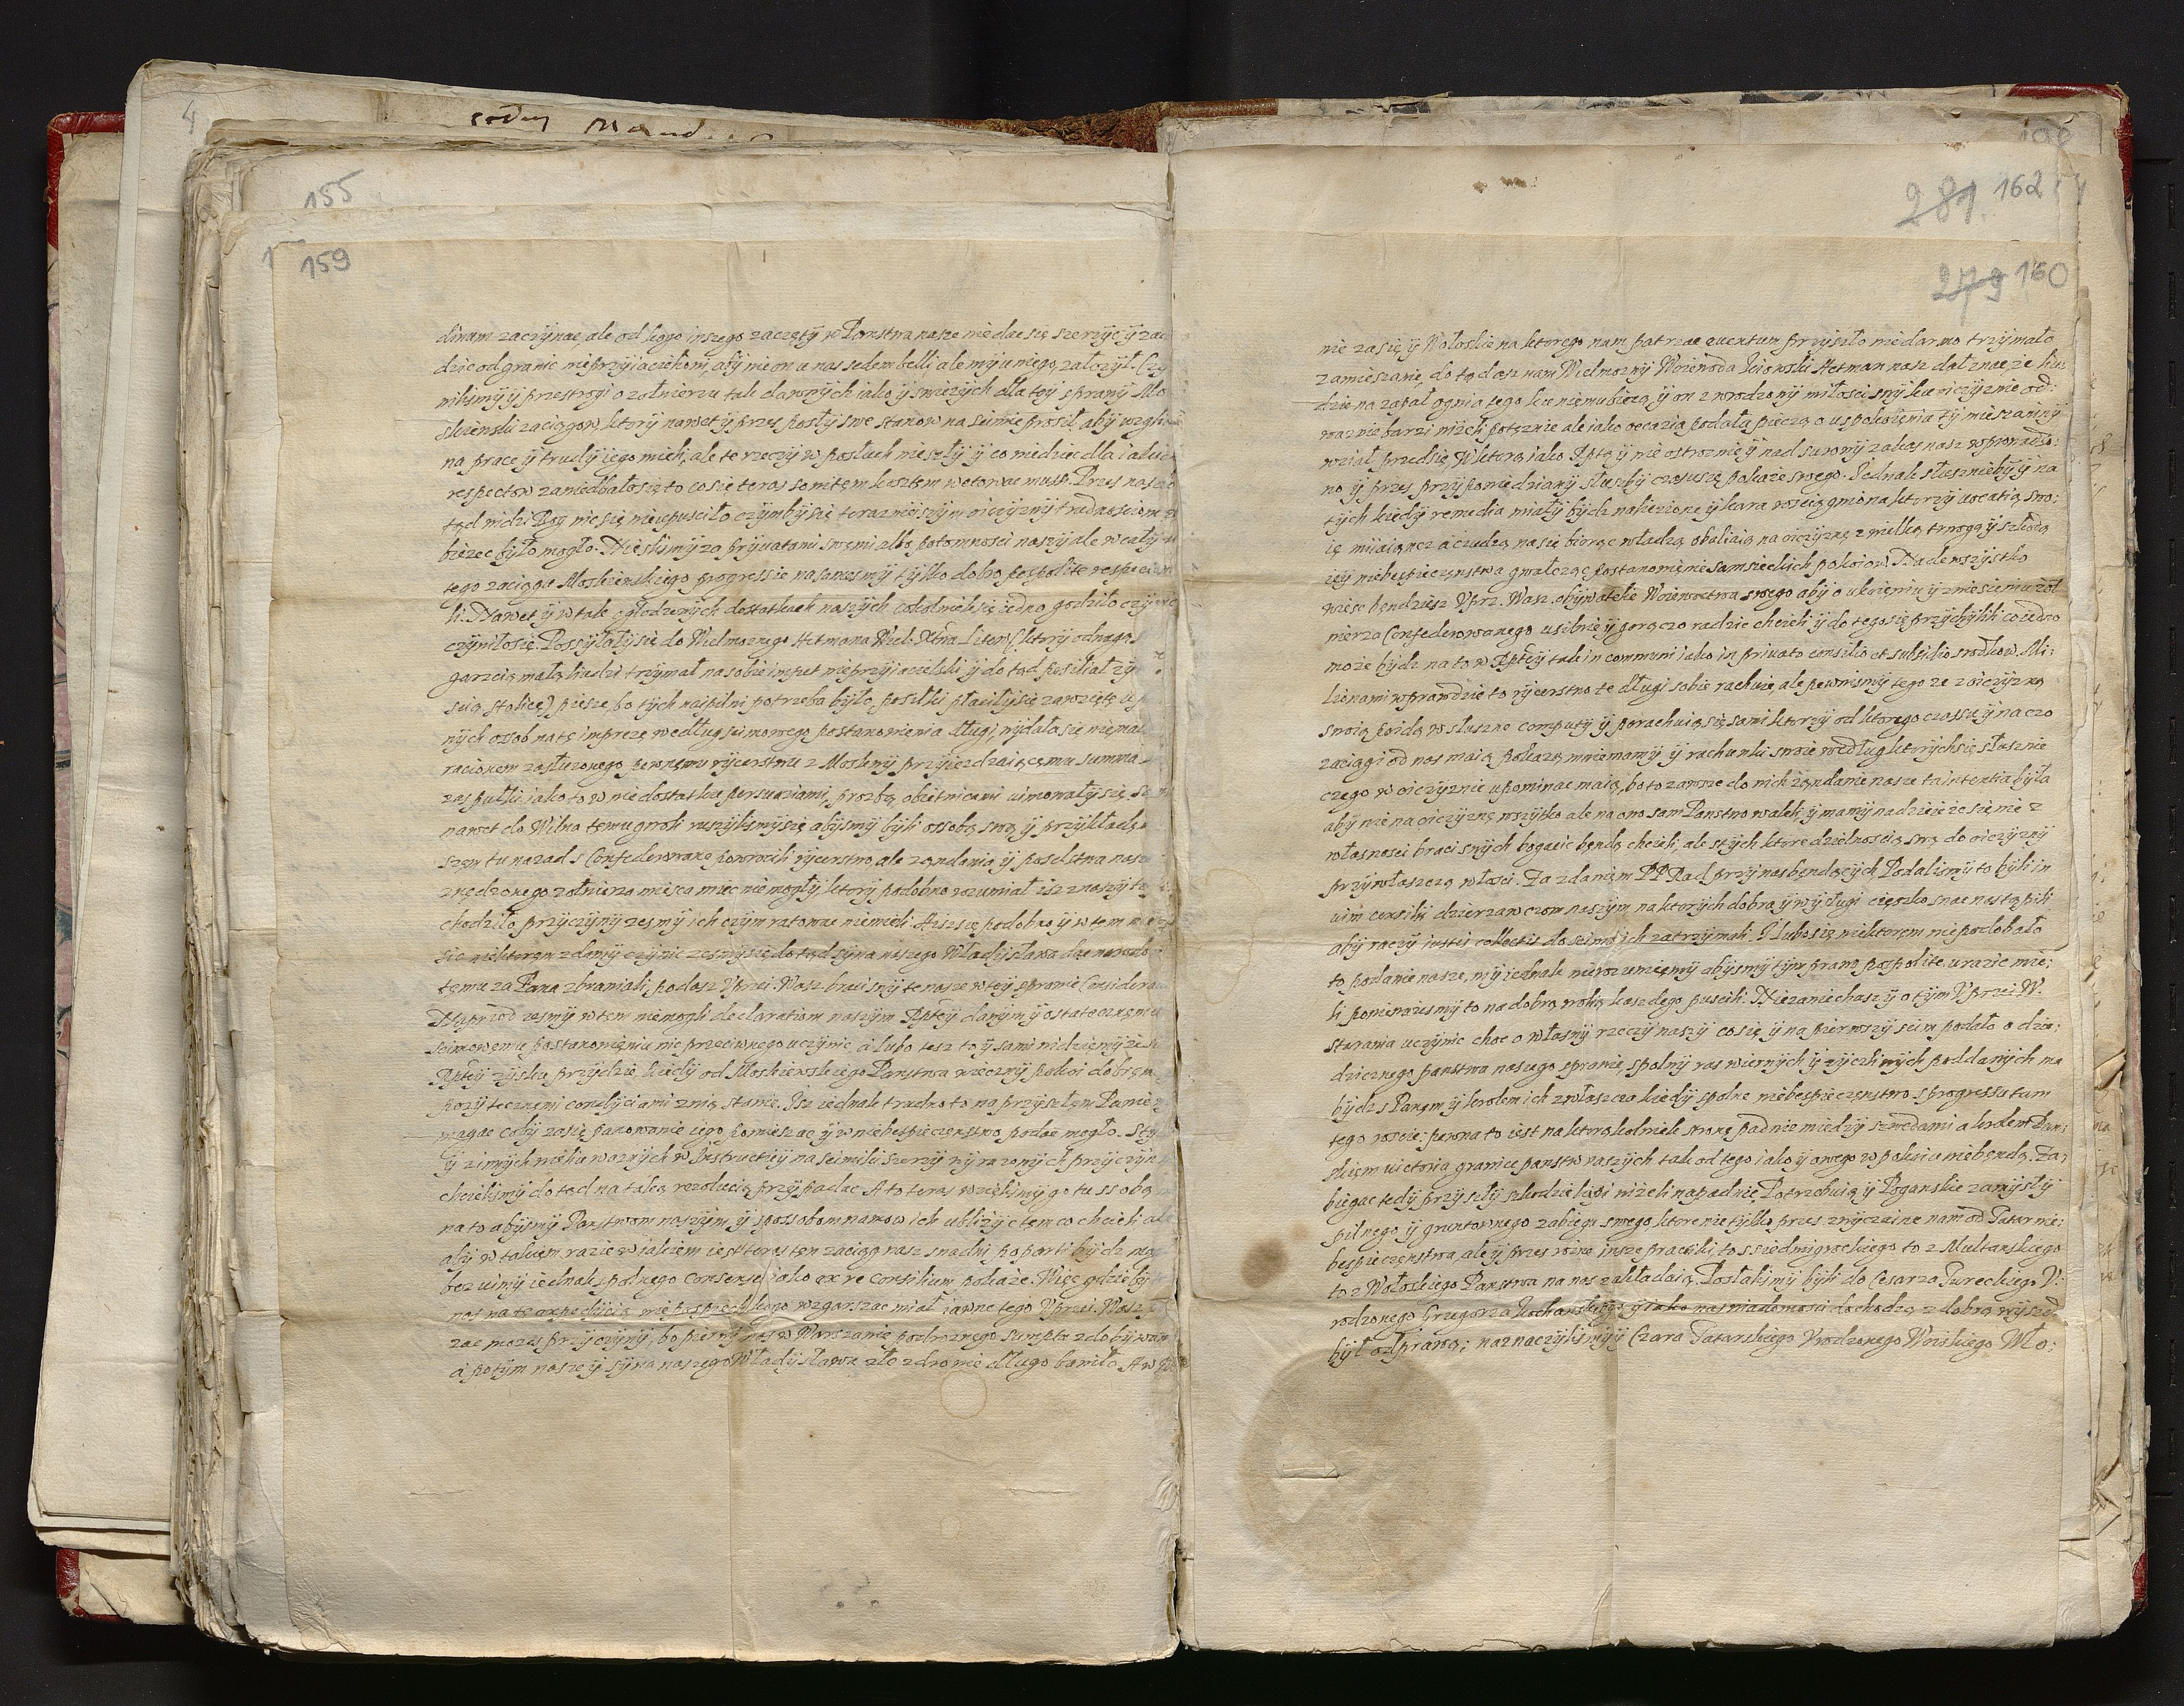 4
155
159
dinam zaczynac, ale od kogo inszego zaczęty w Panstwa nasze nie dac się szerzyc y
dzic od granic nieprzyiacielkom, aby nie on u nas sedem belli ale my u niego założyli.
nilismy y przestrogi o zołnierzu tak dawnych iako y swiezych dla tey sprawy Mo
skiewski zaciągow, ktory nawet y przez posły swe stanow na seimie prosił aby wzgl
na prace y trudy iego mieli, ale te rzeczy w posłuch nie szły y co niedziec dla iakich
respectow zaniedbało się to co się teras somitem kosztem wetowac musi. Przes nas
tąd widzi Bog nic się nie upusciło czymby się terazniyszym oiczyzny trudnosciom
biezec było mogło. Nieslismy za prywatami swemi albo potomnosci naszy ale w cały
tego zaciągu Moskiewskiego progressie na samesmy tylko dobro pospolite respe
li. Nawet y w tak ogłodzonych dostatkach naszych cokolwiek się iedno godziło
czyniło się. Possyłały się do Wielmoznego Hetmana Wiel. Xtwa Litew. (ktory od naga
garzcią małą ludzi trzymał na sobie impet nieprzyiacielski y do tąd posilał
scią stolicę) piesze, bo tych naipilni potrzeba było, posiłki płaciły się zawzięte
nych osob na tę imprezę według seimowego postanowienia długi, wydała się nie mała
racionem zasłuzonego pewnemu rycerstwu z Moskwy przyiezdzaiącemu summa
zas pułki iako to w niedostatku persuaziami, prozbą, obietnicami uimowały się.
nawet do Wilna temu gwoli ruszylismy się abysmy byli ossobą swą y przykładem
szem tu nazad s Confederowane powrocili rycerstwo, ale ządania y poselstwa nasze
znędzonego zołnierza mieisca miec nie mogły, ktory podobno rozumiał isz z naszy
chodziło przyczyny zesmy ich czym ratowac niemieli. Aisz się podobno y w tem
sie niektorem zdamy czynic zesmy się do tąd syna naszego Władysława dac narodo
temu za Pana zbraniali, podasz Uprzei. Wasz. braci swy te nasze w tey sprawie Considera
Naprzod zesmy w tem niemogli declaratiom naszym Rptey danym y ostatecznemu
seimowemu postanowieniu nic przeciwnego uczynic a lubo tesz to y sami widziemy ze
Rptey zysku przydzie, kiedy od Moskiewskiego Panstwa wieczny pokoi dobrem
pozytecznemi conditiami z nią stanie. Isz iednak trudno to na przyszłem Panie
magac coby zasię panowanie iego pomieszac y w niebespieczenstwo podac mogło.
y z innych wielu waznych w Instructiey na seimiki szerzy wyrazonych przyczyn
chcielismy do tąd na taką rezolucią przypadac. A to teras wzielismy go tu ss obą
na to abysmy Panstwom naszym y sposobom namow ich ublizyc tem co chcieli
aby w takiem razie w iakiem iest teras ten zaciąg nasz snadni poparti bydz
bez uimy iednak spolnego Consensu iako ex re Consilium pokaże. Więc gdzie by
nas na te expedycią nie pospiech kogo wzgarszac miał iawne tego Uprzei. Wasz
zac mozes przyczyny, bo pierwy nas w Warszawie pozbroznego sumptu zdobywan
a potym nasze y syna naszego Władysława złe zdrowie długo bawiło. A w
281. 162
279 160
nie zasię y Wołoskie na ktorego nam patrzac euentum przyszło nie darmo trzymało
zamieszanie, do tąd asz nam Wielmozny Woiewoda Kiiowski Hetman nasz dał znac, ze ku
dzie na zapał ognia tego ku niemu bieżą, y on z wrodzony miłosci swy ku oiczyznie od:
waznie barzi niżeli potężnie ale iako occazia podała pieczą o uspokoienia ty mieszaniny
wziął przed się, W ktorą iako Rptą y nie ostroznie y nad surowy zakas nasz wprowadzo:
no y przes przypowiedziany służby czas się pokaże swego. Iednak słusznie by y na
tych kiedy remedia miały bydz nalezione y kara rosciągniona ktorzy uocatią swo:
ię miiaiąncz a czudzą na się biorąc władzą obaliaią na oiczyznę z wielką trwogą y szkodą
iey niebespieczenstwa gwałcząc postanowienie samsieckich pokoiow. Nade wszystko
wiesc bendziesz Uprz. Wasz. obywatelie Woiewoctwa swego aby o ukoieniu y zniesieniu zoł
nierza Confederowanego usilnie y gorączo radzic chcieli y do tego się przychylili co iedno
może bydz na to w Rptey tak in communi iako in priuato consilio et subsidio srodkow. Mi:
lionami wprawdzie to rycerstwo te długi sobie rachuie, ale pewnismy tego ze z oiczyzną
swoią poidą w słuszne computy y porachuią się sami ktorzy od ktorego czassu y na czo
zaciągi od nas maią pokazą mniemamy y rachunki swoie według ktorych się słusznie
czego w oiczyznie upominac maią, bo to zawsze do nich ządanie nasze ta intentia była
aby nie na oiczyznę wszytko ale na ono sam Panstwo walcli y mamy nadzieie ze się nie z
własnosci braci swych bogacic będą chcieli, ale s tych ktore dzielnoscią swą do oiczyzny
przywłaszczą włosci. Za zdaniem PP Rad przy nas będących Podalismy to byli in
uim consilii dzierzawczom naszym na ktorych dobra y wysługi cięszko snac nastąpili
aby raczy iustis collectis do seimu ich zatrzymali. I lubo się niektorem nie podobało
to podanie nasze, my iednak nierozumiemy abysmy tym prawo pospolite urazic mie:
li poniewasmy to na dobrą wolą kazdego puscili. Niezaniechasz y o tym Uprzei W.
starania uczynic choc o własny rzeczy naszy co się y na pierwszy seim podało o dzie:
dzicznego panstwa naszego sprawie, spolny ras wiernych y zyczliwych poddanych ma
bydz s Panem y krolem ich zwłaszcza kiedy spolne niebespieczenstwo s progressu tam
tego roscie: pewna to iest na ktorąkolwiek stronę padnie miedzy Szwedami a krolem Dun:
skiem uictoria granice panstw naszych tak od tego iako y onego w pokoiu nie będą. Za:
biegac tedy przyszły szkodzie lepi niżeli napadnie, Potrzebuią y Poganskie zamysły
pilnego y gruntownego zabiegu swego, ktore nie tylko przes zwyczaine nam od Tatar nie:
bespieczenstwa, ale y przes rozne insze practiki, to s siedmigrockiego to z Multanskiego
to z Wołoskiego Panstwa na nas zakładaią. Posłalismy byli do Cesarza Tureckiego U:
rodzonego Grzegorza Kochanskiego, y iako nas wiadomosci dochodzą z dobrą wyszed
był odprawą; naznaczylismy y Czara Tatarskiego Urodzonego Woiskiego Wło: